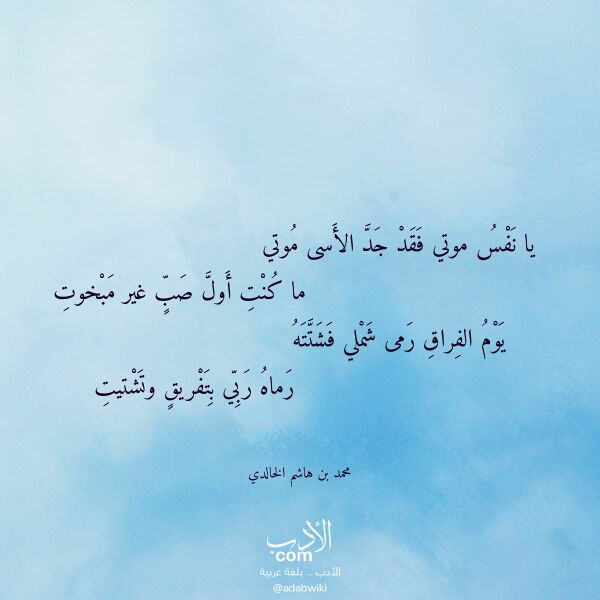 يا نَفْسُ موتي فَقَدْ جَدَّ الأَسى مُوتي
ما كُنْتِ أَولَّ صَبٍّ غير مَبْخوتِ
يَوْمُ الفِراقِ رَمى شَمْلي فَشَتَّتَهُ
رَماهُ رَبِّي بِتَفْريقٍ وتَشْتيتِ
محمد بن هاشم الخالدي
الأدب
com
الأدب .. بلغة عربية
@adabwiki